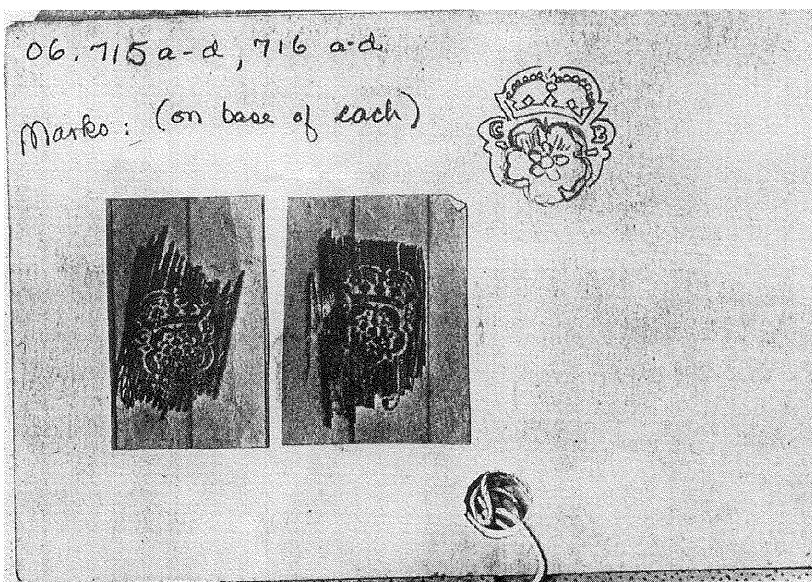 06.715 a-d, 716 a-d
Marks: (on base of each)
C B